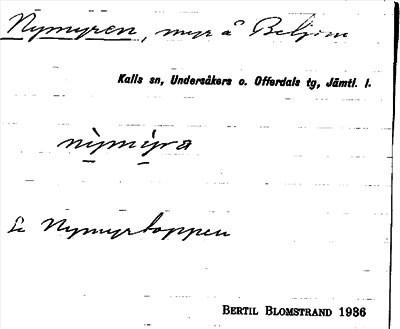 Nymyren, myr å
Kalls sn, Undersåkers o. Offerdals tg, Jämtl. l.
nỳmýra
Se Nymyrtoppen
BERTIL BLOMSTRAND 1986